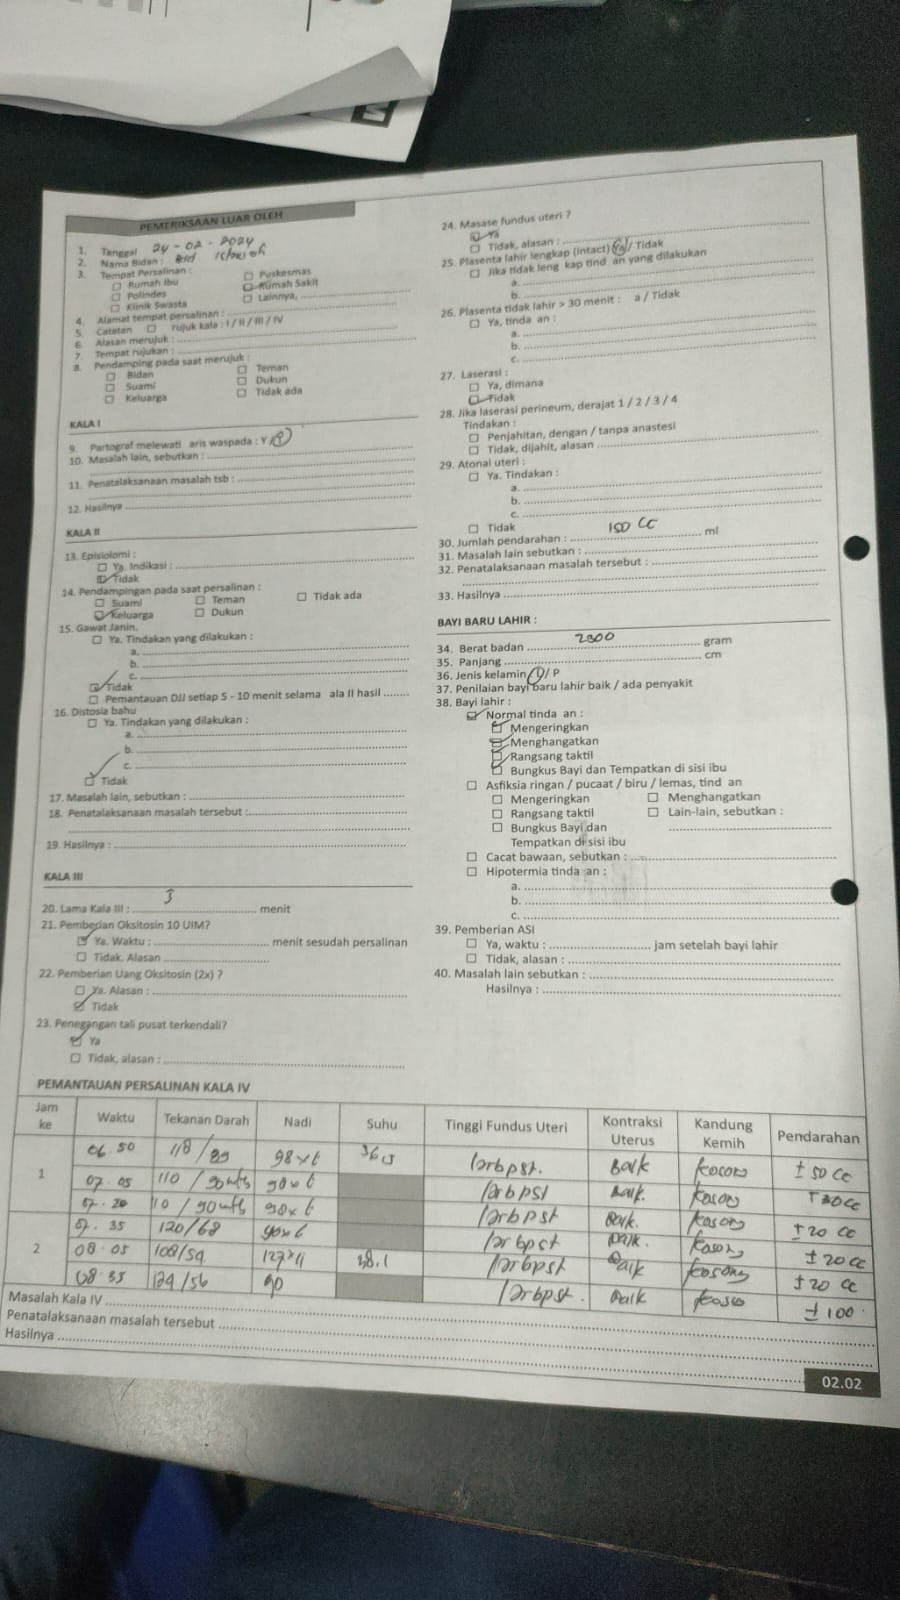 PEMERIKSAAN LUAR OLEH
1. Tanggal 24 - 02 - 2024
2. Nama Bidan : Bid
3. Tempat Persalinan :
☐ Rumah Ibu ☐ Puskesmas
☐ Polindes ☑ Rumah Sakit
☐ Klinik Swasta ☐ Lainnya,
4. Alamat tempat persalinan :
5. Catatan ☐ rujuk kala : I / II / III / IV
6. Alasan merujuk :
7. Tempat rujukan :
8. Pendamping pada saat merujuk :
☐ Bidan ☐ Teman
☐ Suami ☐ Dukun
☐ Keluarga ☐ Tidak ada
KALA I
9. Partograf melewati aris waspada : Y /
10. Masalah lain, sebutkan :
11. Penatalaksanaan masalah tsb :
12. Hasilnya
KALA II
13. Episiolomi :
☐ Ya. Indikasi :
☑ Tidak
14. Pendampingan pada saat persalinan :
☐ Suami ☐ Teman ☐ Tidak ada
☑ Keluarga ☐ Dukun
15. Gawat Janin.
☐ Ya. Tindakan yang dilakukan :
a.
b.
c.
☑ Tidak
☐ Pemantauan DJJ setiap 5 - 10 menit selama ala II hasil
16. Distosia bahu
☐ Ya. Tindakan yang dilakukan :
a.
b.
c.
☑ Tidak
17. Masalah lain, sebutkan :
18. Penatalaksanaan masalah tersebut :
19. Hasilnya :
KALA III
20. Lama Kala III : 5 menit
21. Pemberian Oksitosin 10 UIM?
☑ Ya. Waktu : menit sesudah persalinan
☐ Tidak. Alasan
22. Pemberian Uang Oksitosin (2x) ?
☐ Ya. Alasan :
☑ Tidak
23. Penegangan tali pusat terkendali?
☑ Ya
☐ Tidak, alasan :
24. Masase fundus uteri ?
☑ Ya
☐ Tidak, alasan :
25. Plasenta lahir lengkap (intact) Ya / Tidak
☐ Jika tidak leng kap tind an yang dilakukan
a.
b.
26. Plasenta tidak lahir > 30 menit : a / Tidak
☐ Ya, tinda an :
a.
b.
c.
27. Laserasi :
☐ Ya, dimana
☑ Tidak
28. Jika laserasi perineum, derajat 1 / 2 / 3 / 4
Tindakan :
☐ Penjahitan, dengan / tanpa anastesi
☐ Tidak, dijahit, alasan
29. Atonai uteri :
☐ Ya. Tindakan :
a.
b.
c.
☐ Tidak
30. Jumlah pendarahan : 150 cc ml
31. Masalah lain sebutkan :
32. Penatalaksanaan masalah tersebut :
33. Hasilnya
BAYI BARU LAHIR :
34. Berat badan 2300 gram
35. Panjang cm
36. Jenis kelamin L / P
37. Penilaian bayi baru lahir baik / ada penyakit
38. Bayi lahir :
☑ Normal tinda an :
☑ Mengeringkan
☑ Menghangatkan
☑ Rangsang taktil
☑ Bungkus Bayi dan Tempatkan di sisi ibu
☐ Asfiksia ringan / pucaat / biru / lemas, tind an
☐ Mengeringkan ☐ Menghangatkan
☐ Rangsang taktil ☐ Lain-lain, sebutkan :
☐ Bungkus Bayi dan
Tempatkan di sisi ibu
☐ Cacat bawaan, sebutkan :
☐ Hipotermia tinda an :
a.
b.
c.
39. Pemberian ASI
☐ Ya, waktu : jam setelah bayi lahir
☐ Tidak, alasan :
40. Masalah lain sebutkan :
Hasilnya :
PEMANTAUAN PERSALINAN KALA IV
Jam ke Waktu Tekanan Darah Nadi Suhu Tinggi Fundus Uteri Kontraksi Uterus Kandung Kemih Pendarahan
1 06.50 118 / 89 98x6 36,5 1arbpst. Baik kosong ± 50 cc
07.05 110 / 90 90x6 1arbpst Baik. kosong
07.20 110 / 90 90x6 1arbpst Baik. kosong ± 20 cc
07.35 120/68 1arbpst Baik. kosong ± 20 cc
2 08.05 108/59 38,1 1arbpst Baik kosong ± 20 cc
08.35 129/56 90 1arbpst. Baik ± 100
Masalah Kala IV
Penatalaksanaan masalah tersebut
Hasilnya
02.02